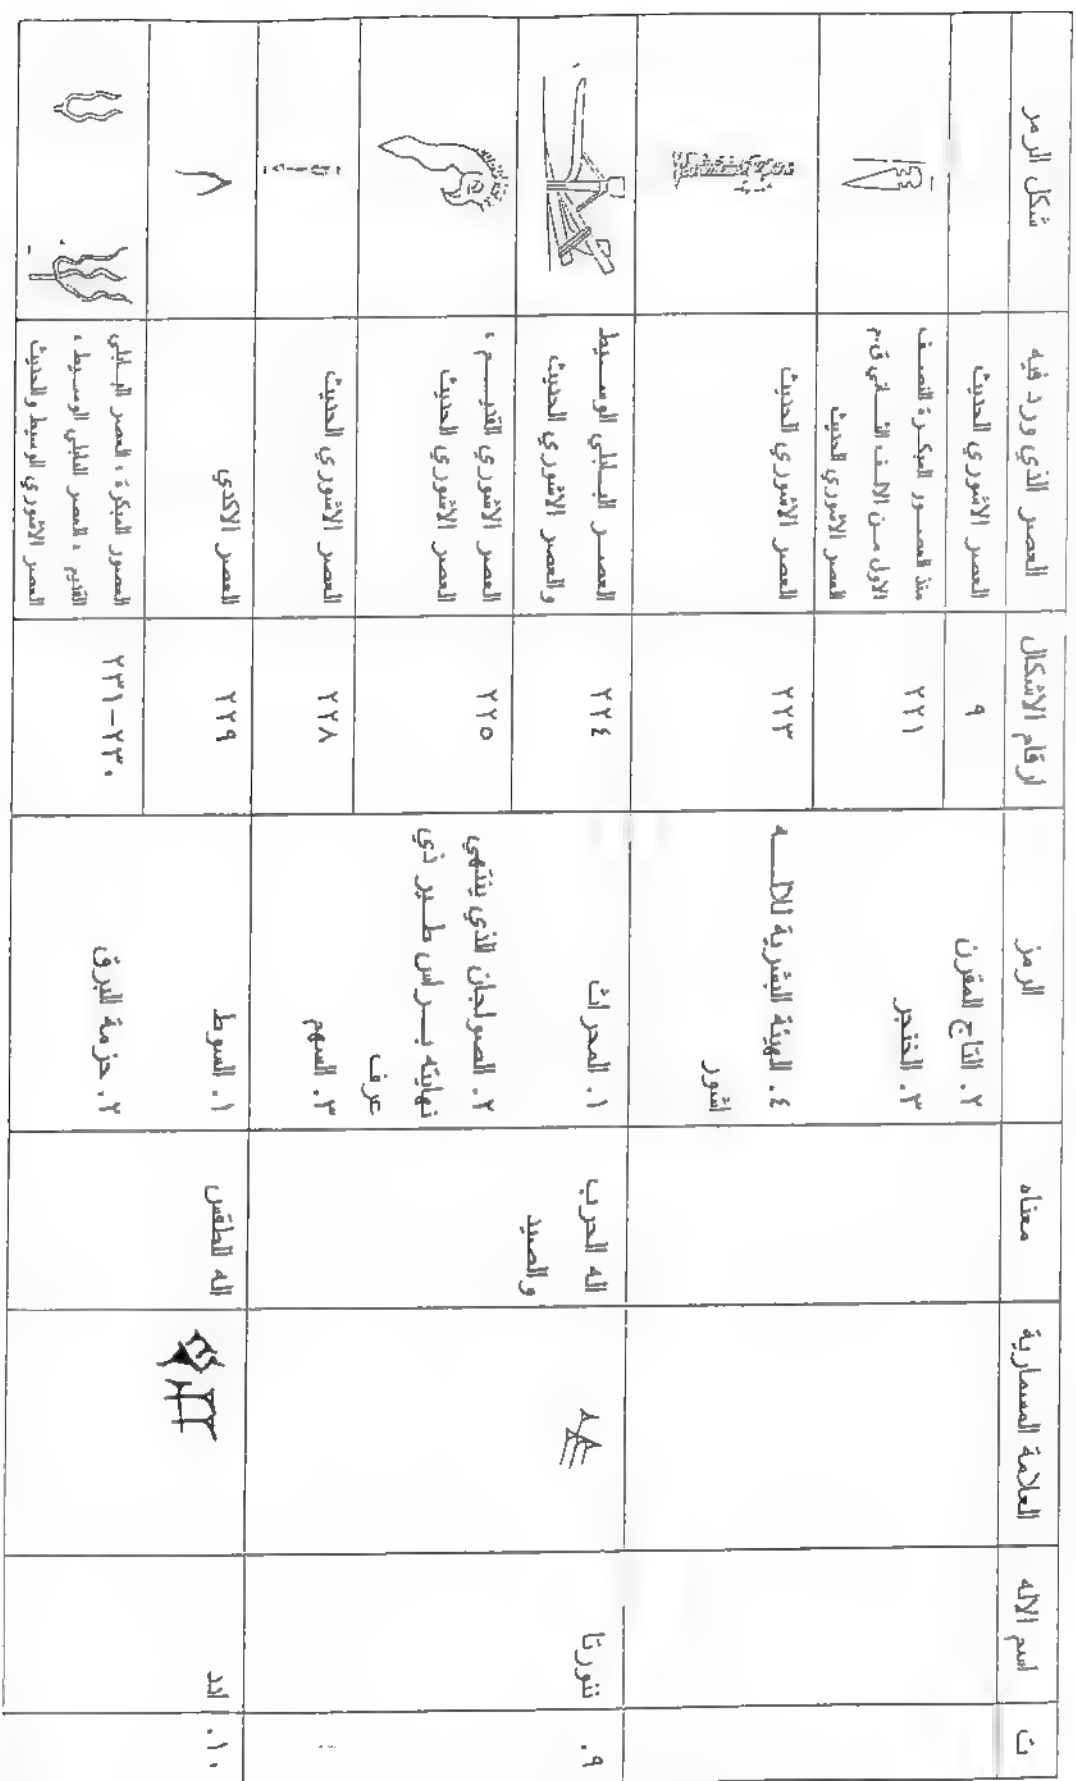 ت
اسم الاله
العلامة المسمارية
معناه
الرمز
ارقام الاشكال
العصر الذي ورد فيه
شكل الرمز
٢. التاج المقرن
٩
العصر الاشوري الحديث
٣. الخنجر
٢٢١
منذ العصور المبكرة النصف
الاول من الالف الثاني ق.م
العصر الاشوري الحديث
٤. الهيئة البشرية للاله
اشور
٢٢٣
العصر الاشوري الحديث
٩.
ننورتا
اله الحرب
والصيد
١. المحراث
٢٢٤
العصر البابلي الوسيط
والعصر الاشوري الحديث
٢. الصولجان الذي ينتهي
نهايته براس طير ذي
عرف
٢٢٥
العصر الاشوري القديم ،
العصر الاشوري الحديث
٣. السهم
٢٢٨
العصر الاشوري الحديث
١٠.
ادد
اله الطقس
١. السوط
٢٢٩
العصر الاكدي
٢. حزمة البرق
٢٣٠-٢٣١
العصور المبكرة ، العصر البابلي
القديم ، العصر البابلي الوسيط ،
العصر الاشوري الوسيط والحديث